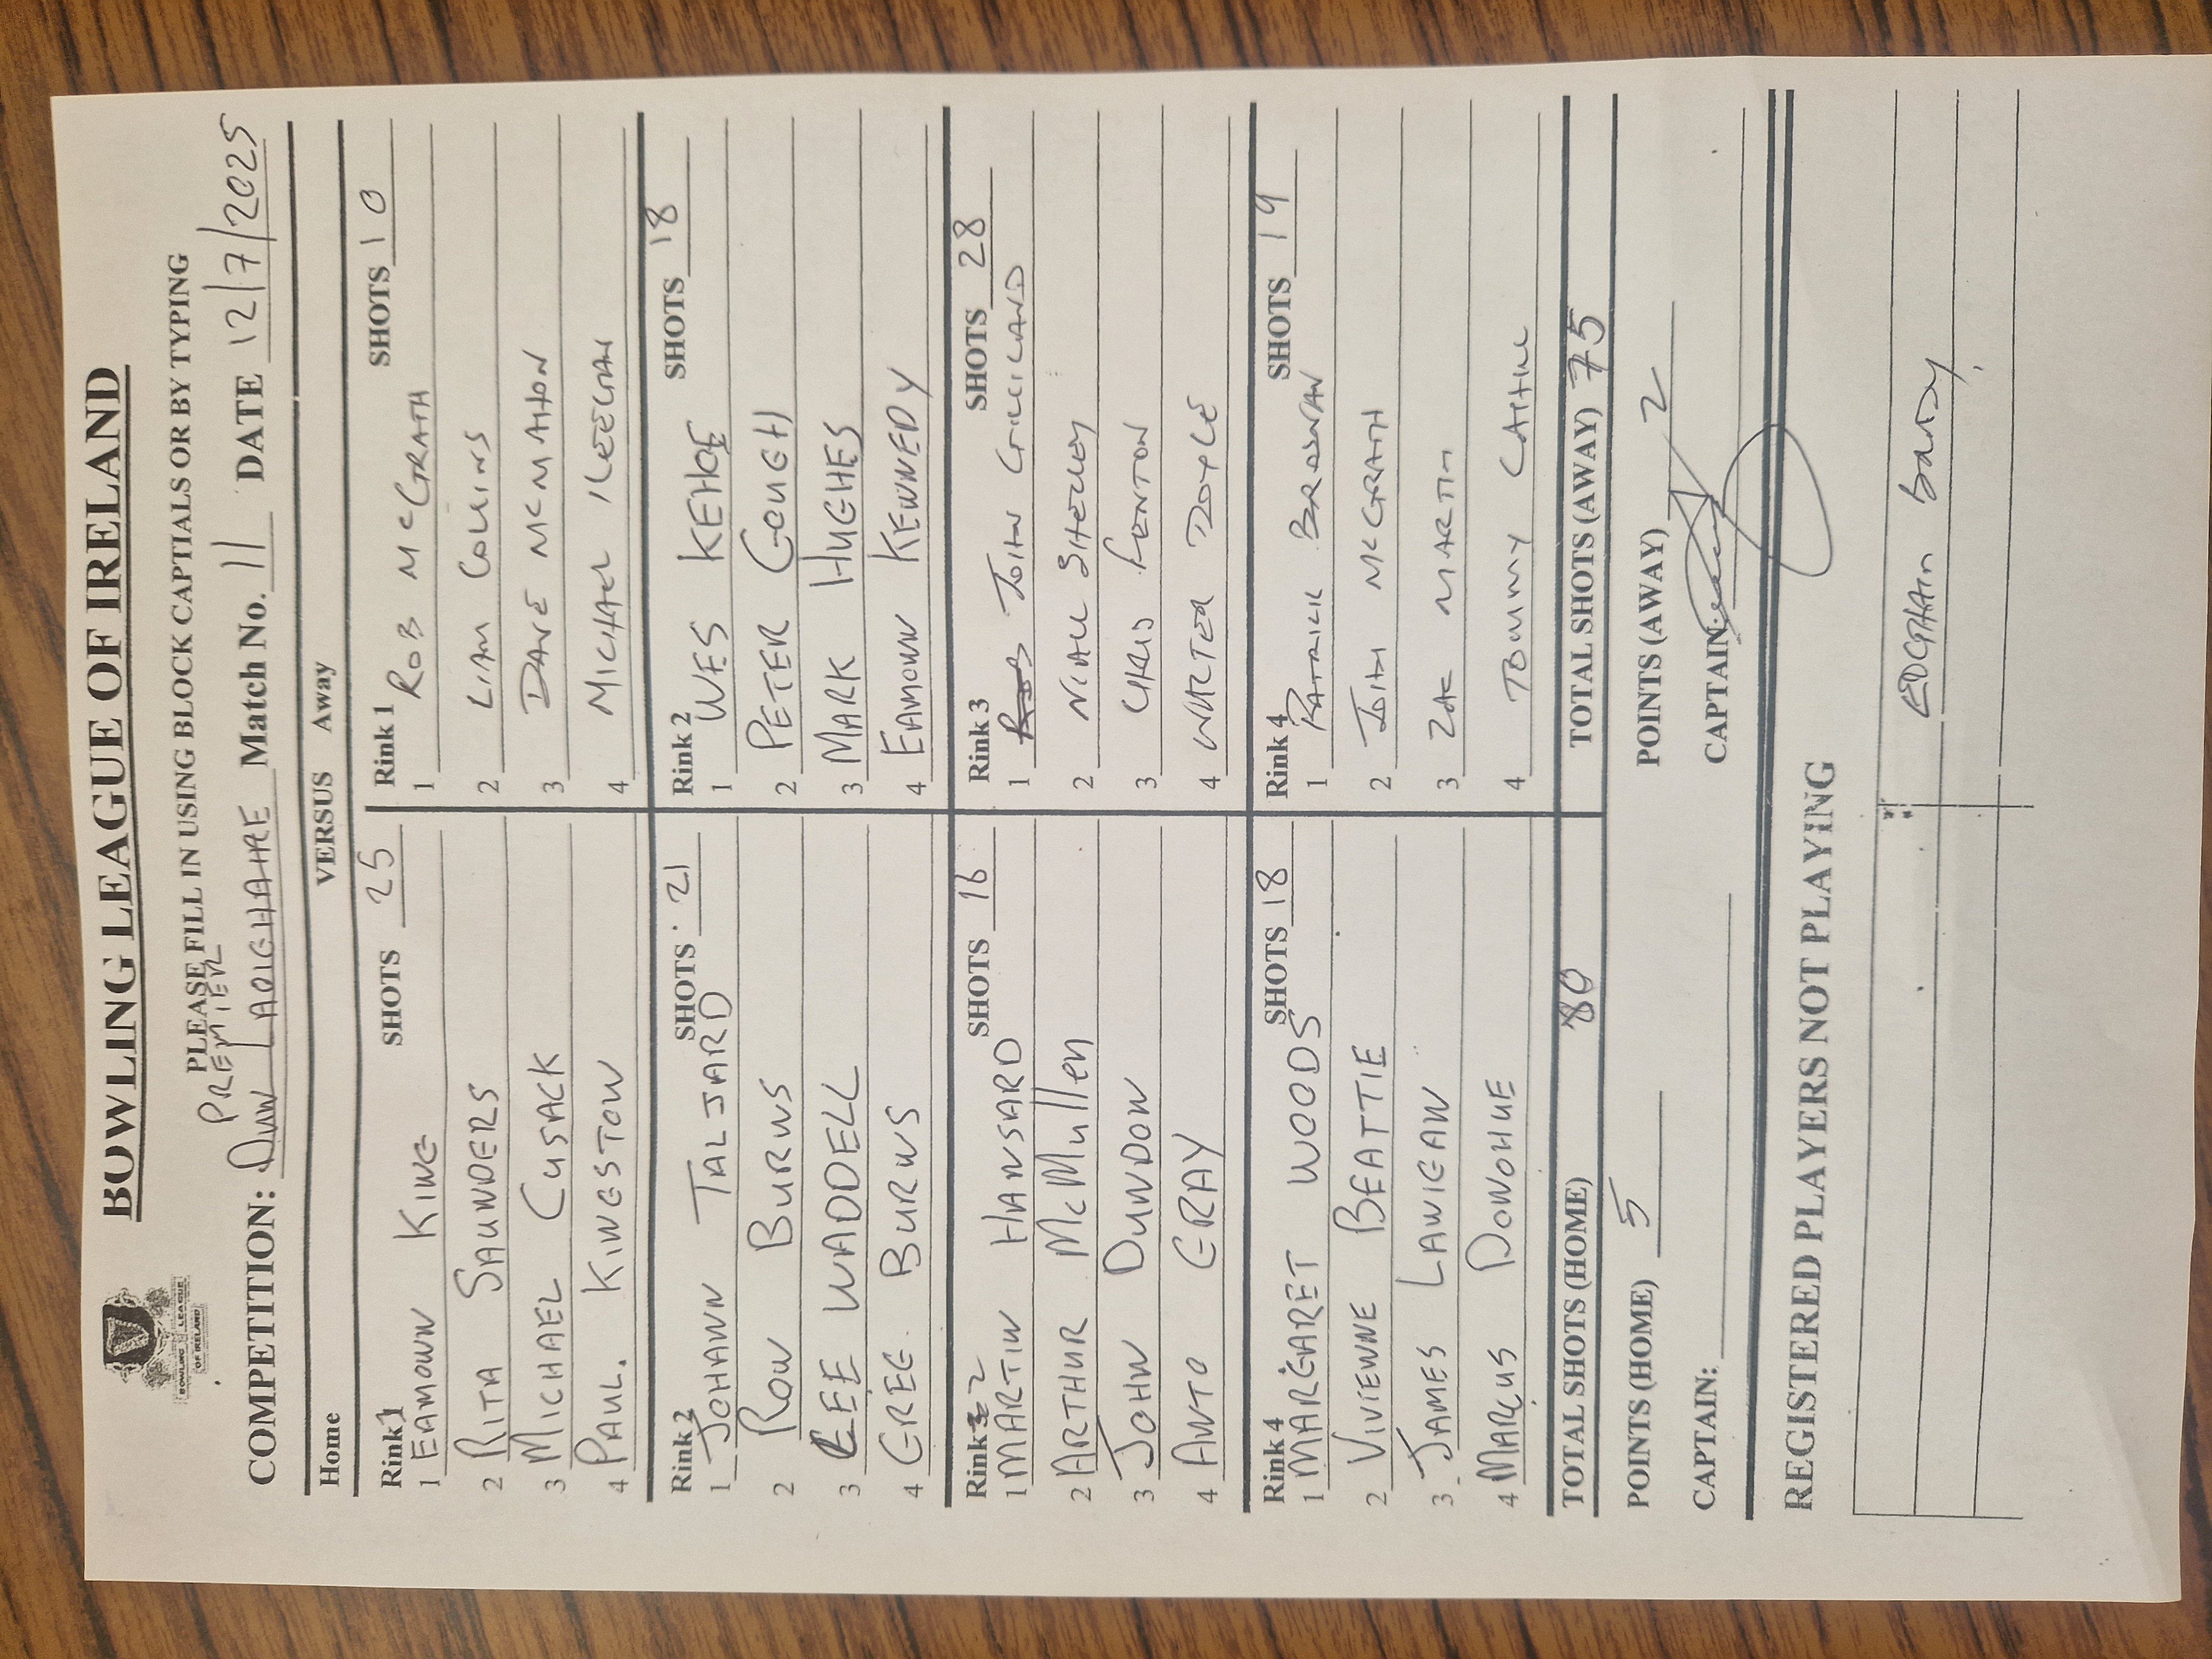 BOWLING LEAGUE OF IRELAND
BOWLING LEAGUE
OF IRELAND
PLEASE FILL IN USING BLOCK CAPTIALS OR BY TYPING
PREMIER
COMPETITION: DUN LAOIGHAIRE Match No. 11 DATE 12/7/2025
Home VERSUS Away
Rink 1 SHOTS 25 Rink 1 SHOTS 10
1 EAMONN KING 1 ROB McGRATH
2 RITA SAUNDERS 2 LIAM COLLINS
3 MICHAEL CUSACK 3 DAVE McMAHON
4 PAUL. KINGSTON 4 MICHAEL KEEGAN
Rink 2 SHOTS 21 Rink 2 SHOTS 18
1 JOHANN TALJARD 1 WES KEHOE
2 RON BURNS 2 PETER GOUGH
3 LEE WADDELL 3 MARK HUGHES
4 GREG BURNS 4 EAMONN KENNEDY
Rink SHOTS 16 Rink 3 SHOTS 28
1 MARTIN HANSARD 1 JOHN GILLILAND
2 ARTHUR McMullen 2 NIALL SHERLEY
3 JOHN DUNDON 3 CHRIS FENTON
4 ANTO GRAY 4 WALTER DOYLE
Rink 4 SHOTS 18 Rink 4 SHOTS 19
1 MARGARET WOODS 1 PATRICK BROSNAN
2 VIVIENNE BEATTIE 2 JOHN McGRATH
3 JAMES LANIGAN 3 ZAK MARTIN
4 MARCUS DONOHUE 4 TOMMY CAHILL
TOTAL SHOTS (HOME) 80 TOTAL SHOTS (AWAY) 75
POINTS (HOME) 5 POINTS (AWAY) 2
CAPTAIN: CAPTAIN:
REGISTERED PLAYERS NOT PLAYING